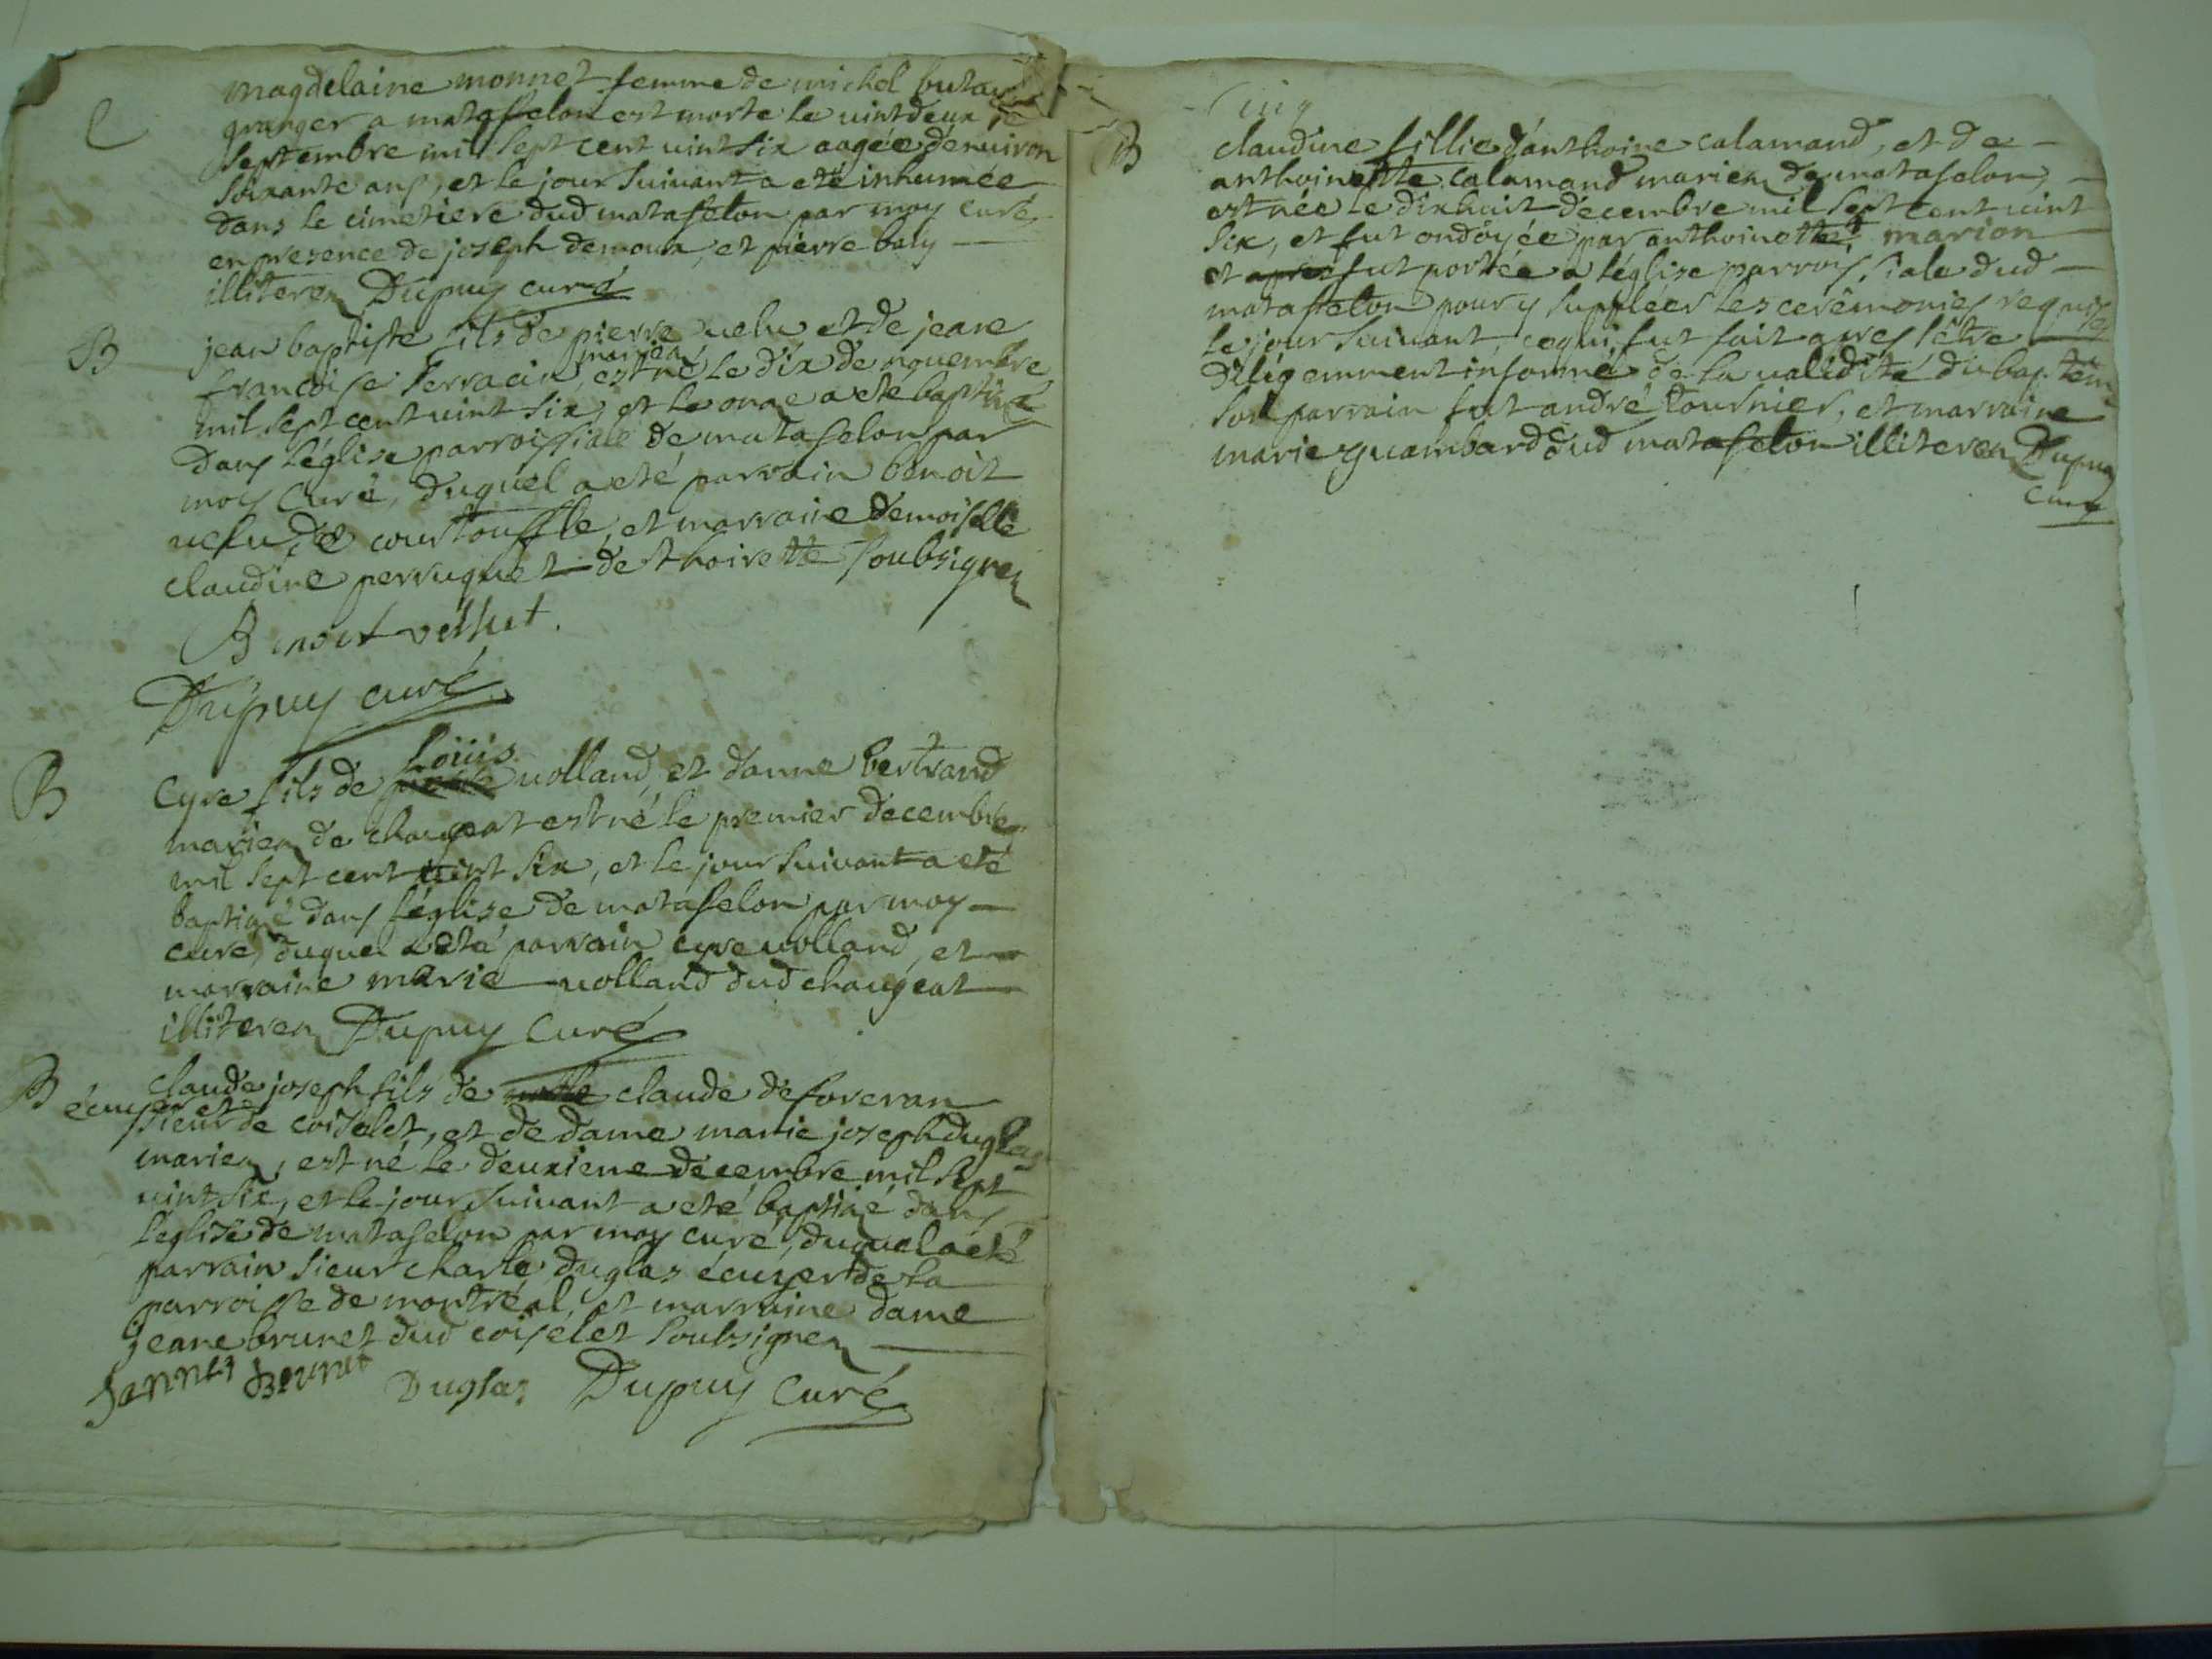 magdelaine monnet femme de michel butau
C
granger a matafelon est morte le vint deux
septembre mil sept cent vint six aagée d'environ
soixante ans, et le jour suivant a eté inhumée
dans le cimetiere dud matafelon par moy curé
en presence de joseph demoux, et pierre
illiterez Dupuy curé
B
jean baptiste fils de pierre velu et de jeane
françoise ferracin mariez est né le dix de novembre
mil sept cent vint six, et le onze a ete baptizé
dans l'église parroissiale de matafelon par
moy Curé, duquel a eté parrain benoit
velu de courtouffle, et marraine demoiselle
claudine perruquet de thoirette soubsignez
Benoit velhut.
Dupuy curé
B
Cyre fils de loüis volland, et danne bertrand
mariez de chaugeat est né le premier decembre
mil sept cent vint six, et le jour suivant a eté
baptizé dans l'église de matafelon par moy
curé, duquel a eté parrain cyre volland, et
marraine marie volland dud chaugeat
illiterez Dupuy Curé
B
claude joseph fils de claude de forcran
écuyer et sieur de coiselet, et de dame marie joseph duglas
mariez, est né le deuxieme decembre mil sept
vint six, et le jour suivant a eté baptizé dans
l'eglise de matafelon par moy curé, duquel a eté
parrain sieur charle duglas écuyer de la
parroisse de montréal, et marraine dame
jeane brunet dud coisélet soubsignez
Jannes Brunet Duglas Dupuy Curé
B
claudine fillie d'anthoine calamand, et de
anthoinette calamand mariez de matafelon
est née le dixhuit decembre mil sept cent vint
six, et fut ondoyée par anthoinette marion
et fut portée a l'église parroissiale dud
matafelon pour y suppleer les cerêmonies requises
le jour suivant, ce qui fut fait apres l'être
diligemment informé de la validité du baptème
son parrain fut andré tournier, et marraine
marie guambard dud matafelon illiterez Dupuy
curé